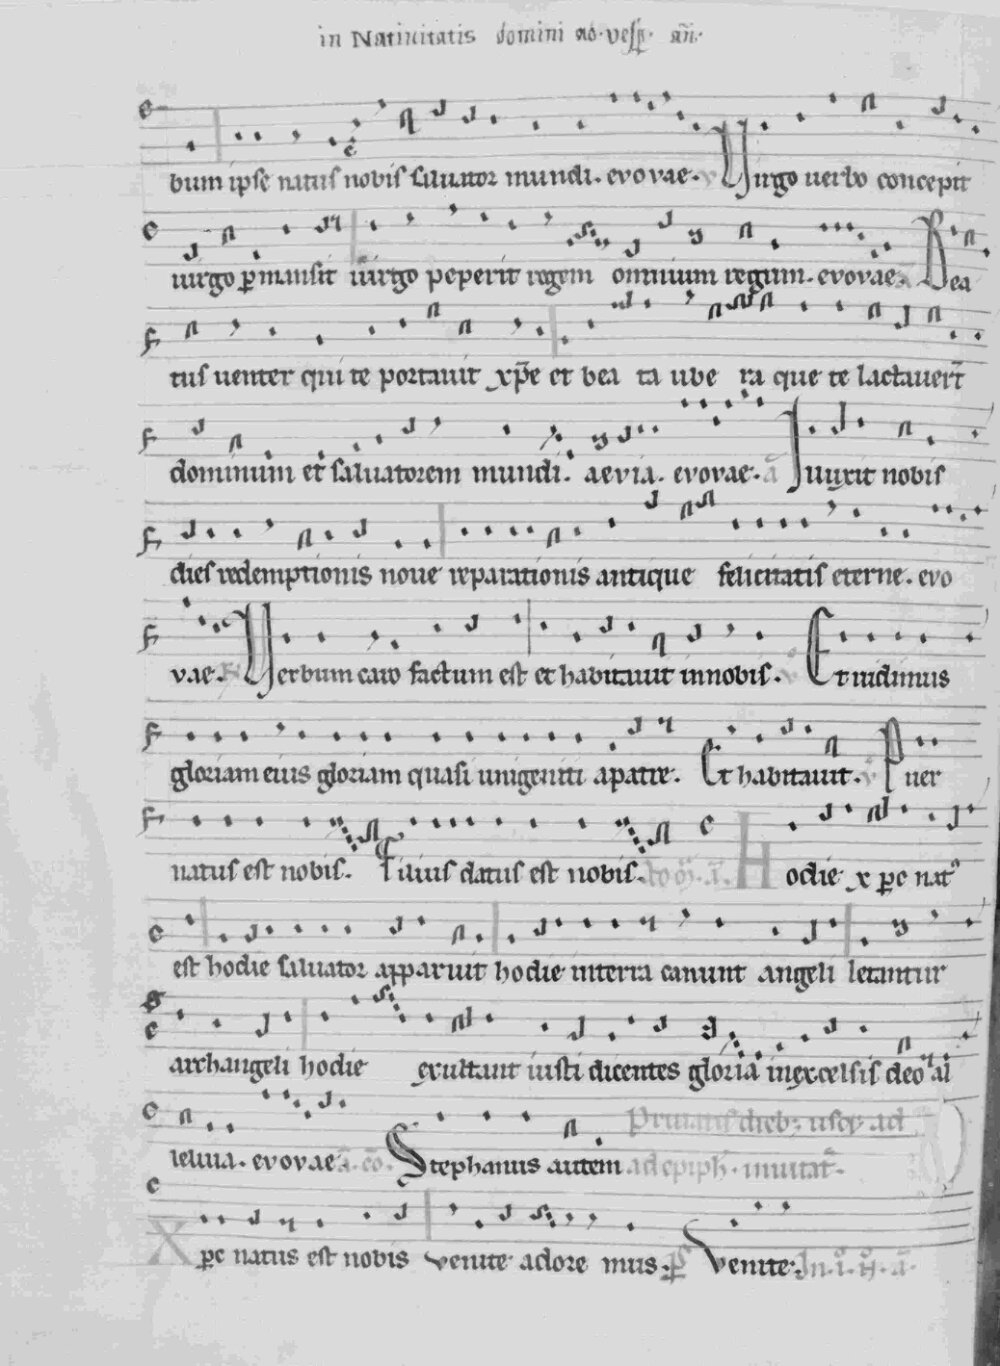 in Natiuitatis domini ad vesp̄. añ.
bum ipse natus nobis saluator mundi. evovae. Virgo uerbo concepit
uirgo ꝑmansit uirgo peperit regem omnium regum. evovae. Bea
tus uenter qui te portauit xp̄e et bea ta ube ra que te lactauer̄t
dominum et saluatorem mundi. aevia. evovae. ā Iuuxit nobis
dies redemptionis noue reparationis antique felicitatis eterne. evo
vae. Verbum caro factum est et habitauit innobis. Et uidimus
gloriam eius gloriam quasi unigeniti apatre. Et habitauit. Puer
natus est nobis. Filius datus est nobis. Hodie xꝑc nat᾽
est hodie saluator apparuit hodie interra canunt angeli letantur
archangeli hodie exultant iusti dicentes gloria inexcelsis deo al
leluia. evovae. Stephanus autem
Priuatis dieb; usq; ad
ad epiph̄. inuitat̄.
Xꝑc natus est nobis venite adore mus. p̄s Venite. In .i. ā